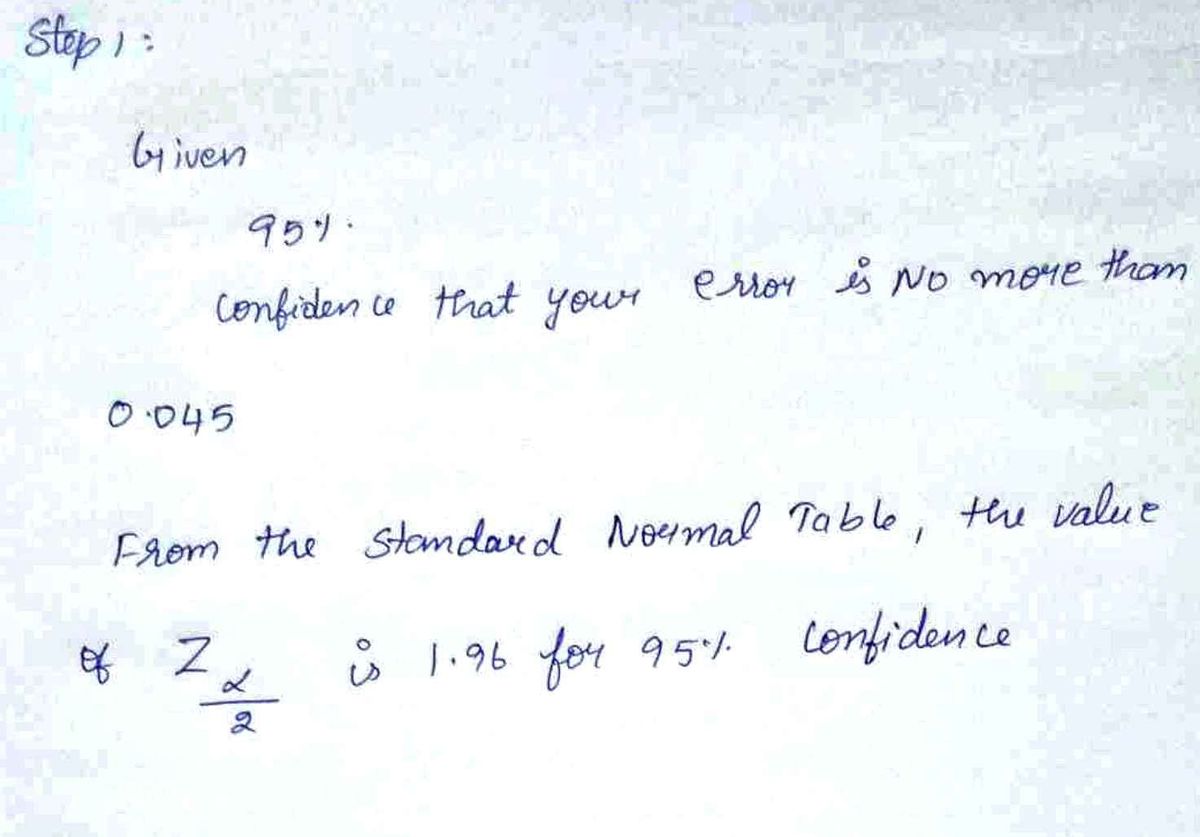 Step 1:
Given
95%.
Confidence that your error is No more than
0.045
From the Standard Normal Table, the value
of Z α/2 is 1.96 for 95% Confidence